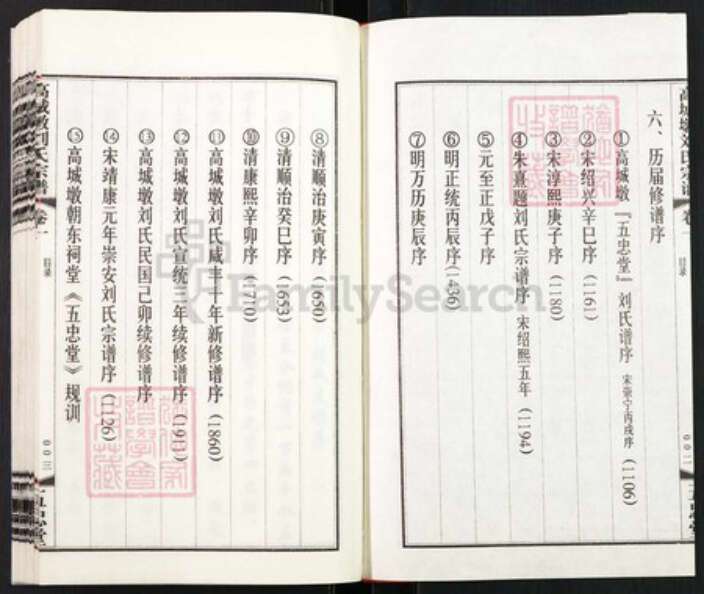 高城墩刘氏宗谱 卷一 目录 〇〇二 五忠堂
六、历届修谱序
①高城墩『五忠堂』刘氏谱序 宋崇宁丙戌序 (1106)
②宋绍兴辛巳序 (1161)
③宋淳熙庚子序 (1180)
④朱熹题刘氏宗谱序 宋绍熙五年 (1194)
⑤元至正戊子序
⑥明正统丙辰序(1436)
⑦明万历庚辰序
⑧清顺治庚寅序 (1650)
⑨清顺治癸巳序 (1653)
⑩清康熙辛卯序 (1710)
⑪高城墩刘氏咸丰十年新修谱序 (1860)
⑫高城墩刘氏宣统三年续修谱序 (1911)
⑬高城墩刘氏民国己卯续修谱序
⑭宋靖康元年崇安刘氏宗谱序 (1126)
⑮高城墩朝东祠堂《五忠堂》规训
高城墩刘氏宗谱 卷一 目录 〇〇三 五忠堂
FamilySearch